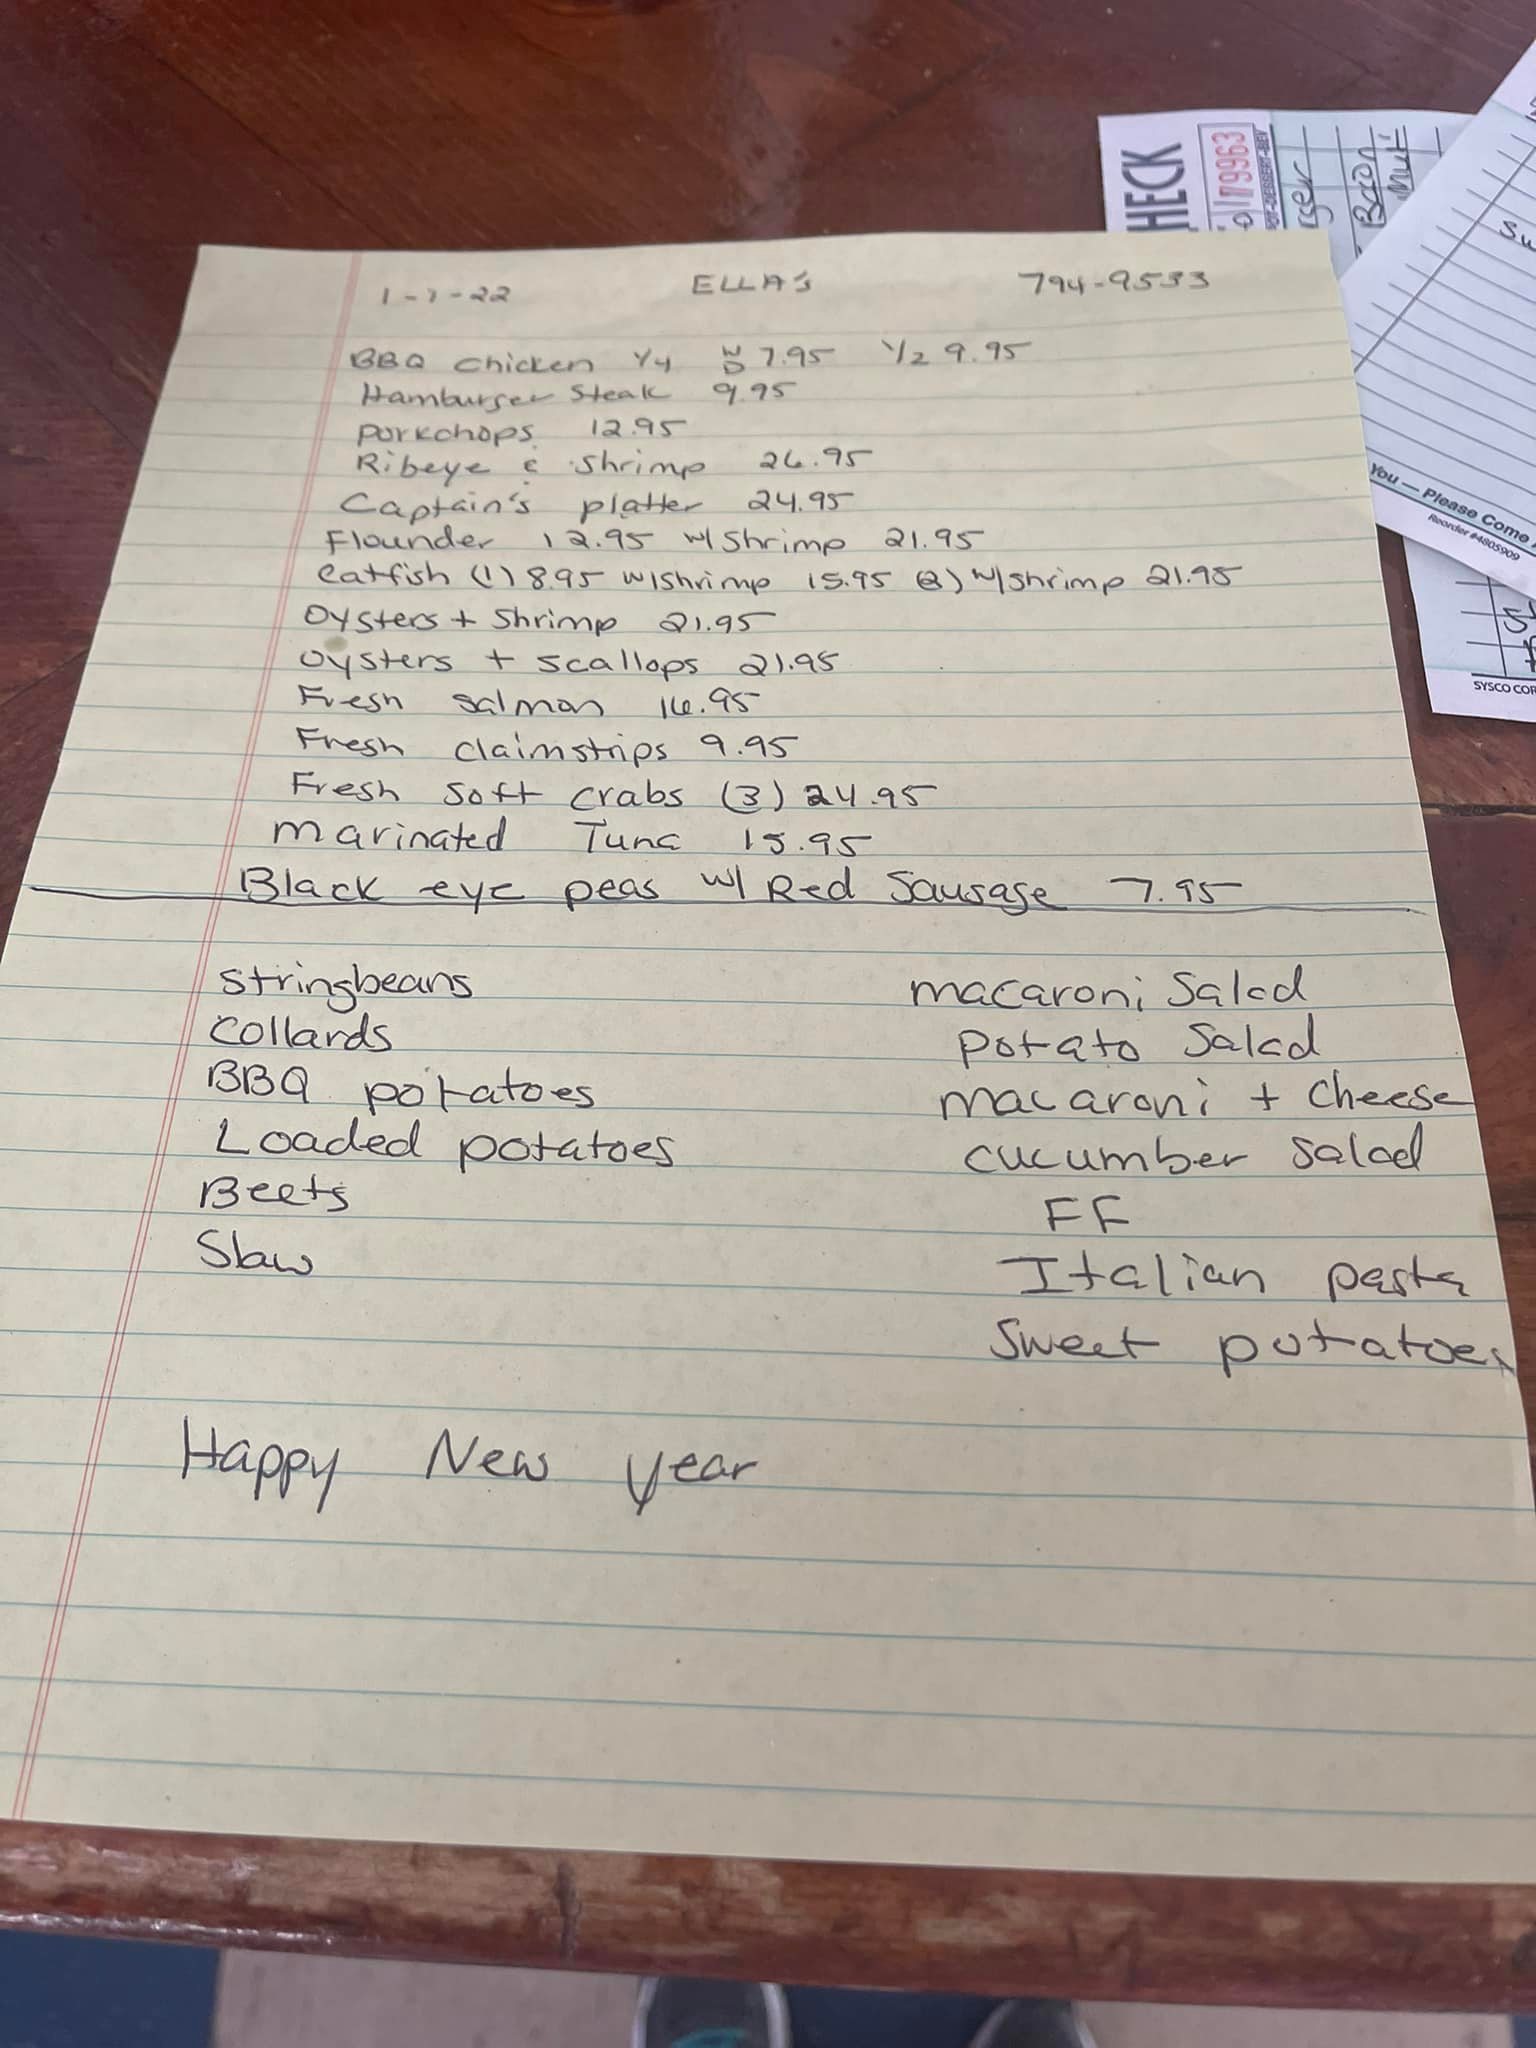 1-7-22 ELLA's 794-9533
BBQ Chicken 1/4 W D 7.95 1/2 9.95
Hamburger Steak 9.95
porkchops 12.95
Ribeye & Shrimp 26.95
Captain's platter 24.95
Flounder 12.95 w/ Shrimp 21.95
Catfish (1) 8.95 w/shrimp 15.95 (2) w/shrimp 21.95
Oysters + Shrimp 21.95
Oysters + Scallops 21.95
Fresh Salmon 16.95
Fresh claimstrips 9.95
Fresh Soft Crabs (3) 24.95
Marinated Tuna 15.95
Black eye peas w/ Red Sausage 7.95
Stringbeans
Collards
BBQ potatoes
Loaded potatoes
Beets
Slaw
macaroni Salad
potato Salad
macaroni + Cheese
cucumber Salad
FF
Italian pasta
Sweet potatoes
Happy New Year
HECK
79963
Bacon
You — Please Come
Reorder #4805909
SYSCO COR